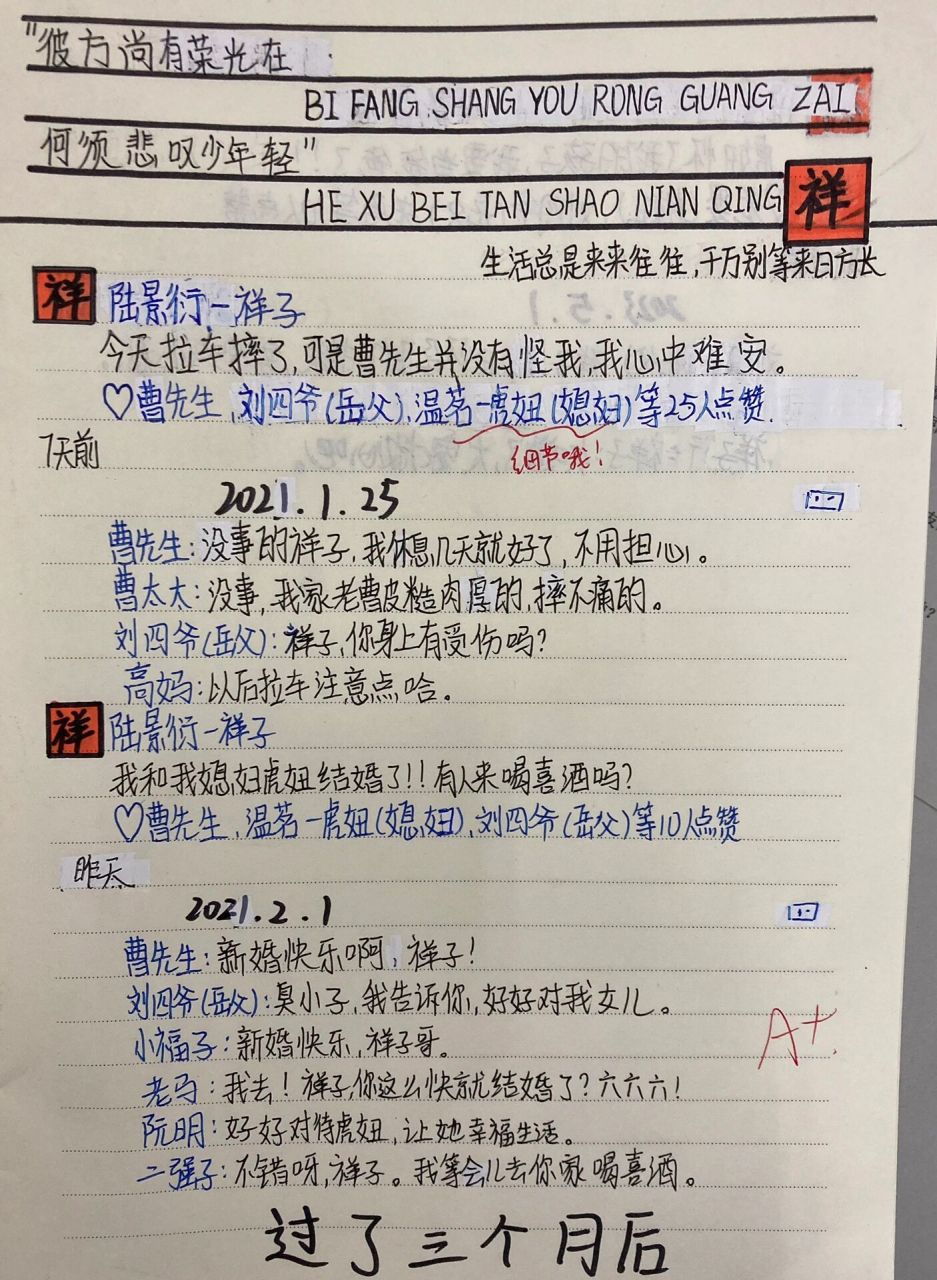 "彼方尚有荣光在
BI FANG SHANG YOU RONG GUANG ZAI
何须悲叹少年轻"
HE XU BEI TAN SHAO NIAN QING
祥
生活总是来来往往,千万别等来日方长
祥 陆景衍-祥子
今天拉车摔了,可是曹先生并没有怪我,我心中难安。
♡曹先生,刘四爷(岳父),温茗-虎妞(媳妇)等25人点赞.
7天前
细节哦!
2021.1.25
曹先生:没事的祥子,我休息几天就好了,不用担心。
曹太太:没事,我家老曹皮糙肉厚的,摔不痛的。
刘四爷(岳父):祥子,你身上有受伤吗?
高妈:以后拉车注意点哈。
祥 陆景衍-祥子
我和我媳妇虎妞结婚了!!有人来喝喜酒吗?
♡曹先生,温茗-虎妞(媳妇),刘四爷(岳父)等10人点赞
昨天
2021.2.1
曹先生:新婚快乐啊,祥子!
刘四爷(岳父):臭小子,我告诉你,好好对我女儿。
小福子:新婚快乐,祥子哥。
A+
老马:我去!祥子,你这么快就结婚了?六六六!
阮明:好好对待虎妞,让她幸福生活。
二强子:不错呀,祥子。我等会儿去你家喝喜酒。
过了三个月后